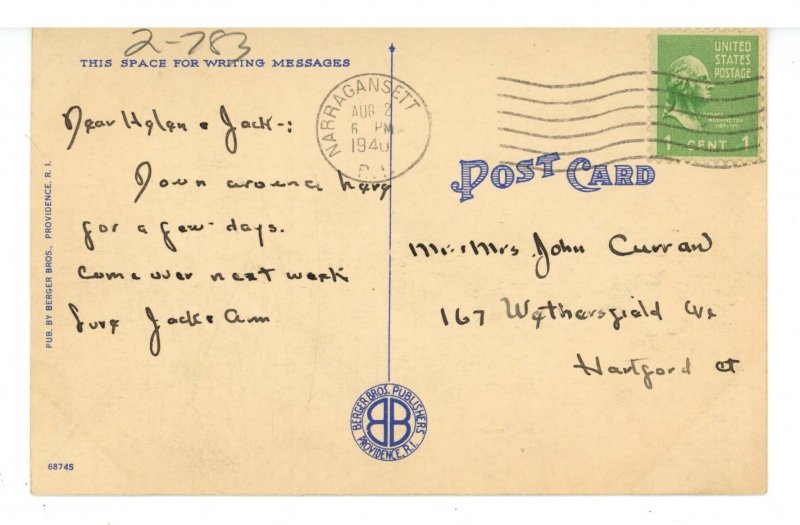 2-783
THIS SPACE FOR WRITING MESSAGES
Dear Helen & Jack-:
Down around here
for a few days.
Come over next week
Sure Jack & Ann
PUB. BY BERGER BROS., PROVIDENCE, R. I.
68745
NARRAGANSETT
AUG 2
6 PM
1940
R.I.
UNITED
STATES
POSTAGE
1 CENT 1
POST CARD
Mr & Mrs John Curran
167 Wethersfield Ave
Hartford Ct
BERGER BROS. PUBLISHERS
BB
PROVIDENCE, R.I.